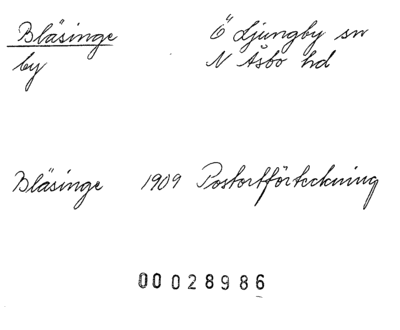 Bläsinge Ö Ljungby sn
by N Åsbo hd
Bläsinge 1909 Postortförteckning
00028986